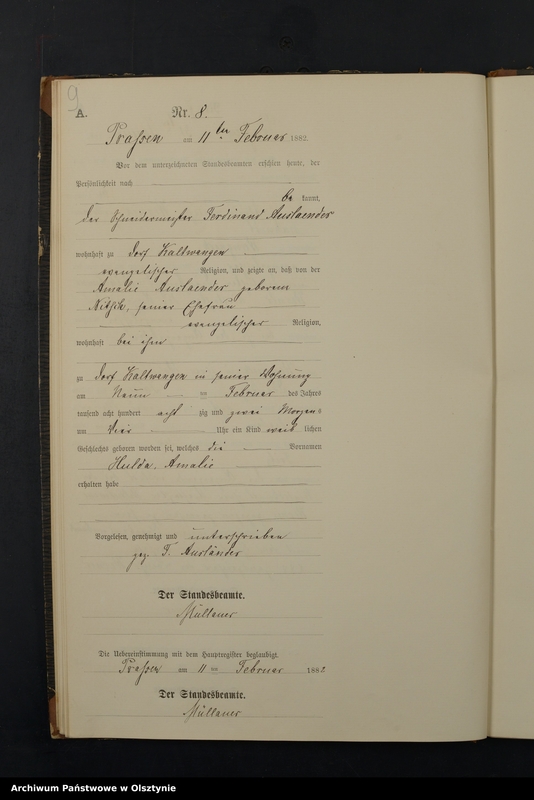 9
A. Nr. 8.
Prassen am 11 ten Februar 1882.
Vor dem unterzeichneten Standesbeamten erschien heute, der
Persönlichkeit nach
be kannt,
der Schneidermeister Ferdinand Auslaender
wohnhaft zu Dorf Kaltwangen
evangelischer Religion, und zeigte an, daß von der
Amalie Auslaender geborene
seiner Ehefrau
evangelischer Religion,
wohnhaft bei ihm
zu Dorf Kaltwangen in seiner Wohnung
am Neun ten Februar des Jahres
tausend acht hundert acht zig und zwei Morgens
um vier Uhr ein Kind weib lichen
Geschlechts geboren worden sei, welches die Vornamen
Hulda, Amalie
erhalten habe
Vorgelesen, genehmigt und unterschrieben
gez. F. Ausländer
Der Standesbeamte.
Müllauer
Die Uebereinstimmung mit dem Hauptregister beglaubigt.
Prassen am 11 ten Februar 1882
Der Standesbeamte.
Müllauer
Archiwum Państwowe w Olsztynie